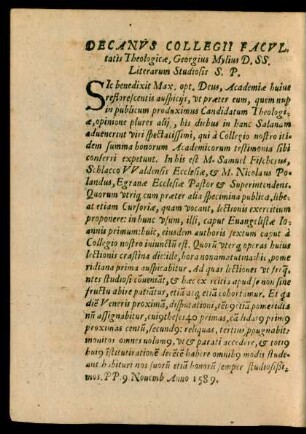 DECANVS COLLEGII FACVL-
tatis Theologicæ, Georgius Mylius D. SS.
Literarum Studiosis S. P.
SIc benedixit Max. opt. Deus, Academiæ huius
reflorescentis auspicijs, vt præter eum, quem nup
in publicum produximus Candidatum Theologi-
æ, opinione plures alij, his diebus in hanc Salanam
aduenerint viri spectatissimi, qui à Collegio nostro iti-
dem summa honorum Academicorum testimonia sibi
conferri expetunt. In his est M. Samuel Fischerus,
Schlacco VValdensis Ecclesiæ, & M. Nicolaus Po-
landus, Egranæ Ecclesiæ Pastor & Superintendens.
Quorum vterq; cum præter alia specimina publica, libe-
at etiam Cursoria, quam vocant, lectionis exercitium
proponere: in hunc vsum, illi, caput Euangelistæ Io-
annis primum: huic, eiusdem authoris sextum caput à
Collegio nostro iniunctū est. Quorū vterq; operas huius
lectionis crastina die: ille, hora nona matutina: his, pome-
ridiana prima auspicabitur. Ad quas lectiones vt freq̄-
tes studiosi cōueniāt, & hæc exercitia apud se non sine
fructu abire patiātur, etiā atq; etiā cohortamur. Et qa
diē Veneris proximā, disputationi,
nū assignabitur, primas,
proximas centū, secūdæ: reliquas, tertius pugnabit:
monitor omnes volumus, vt & parati accedere, & tot
huius īstitutirationē habere omnibus modis stude-
ant habituri nos suorū etiā honorū semper studiosissi-
mos. P.P. 9 Nouemb Anno 1589.